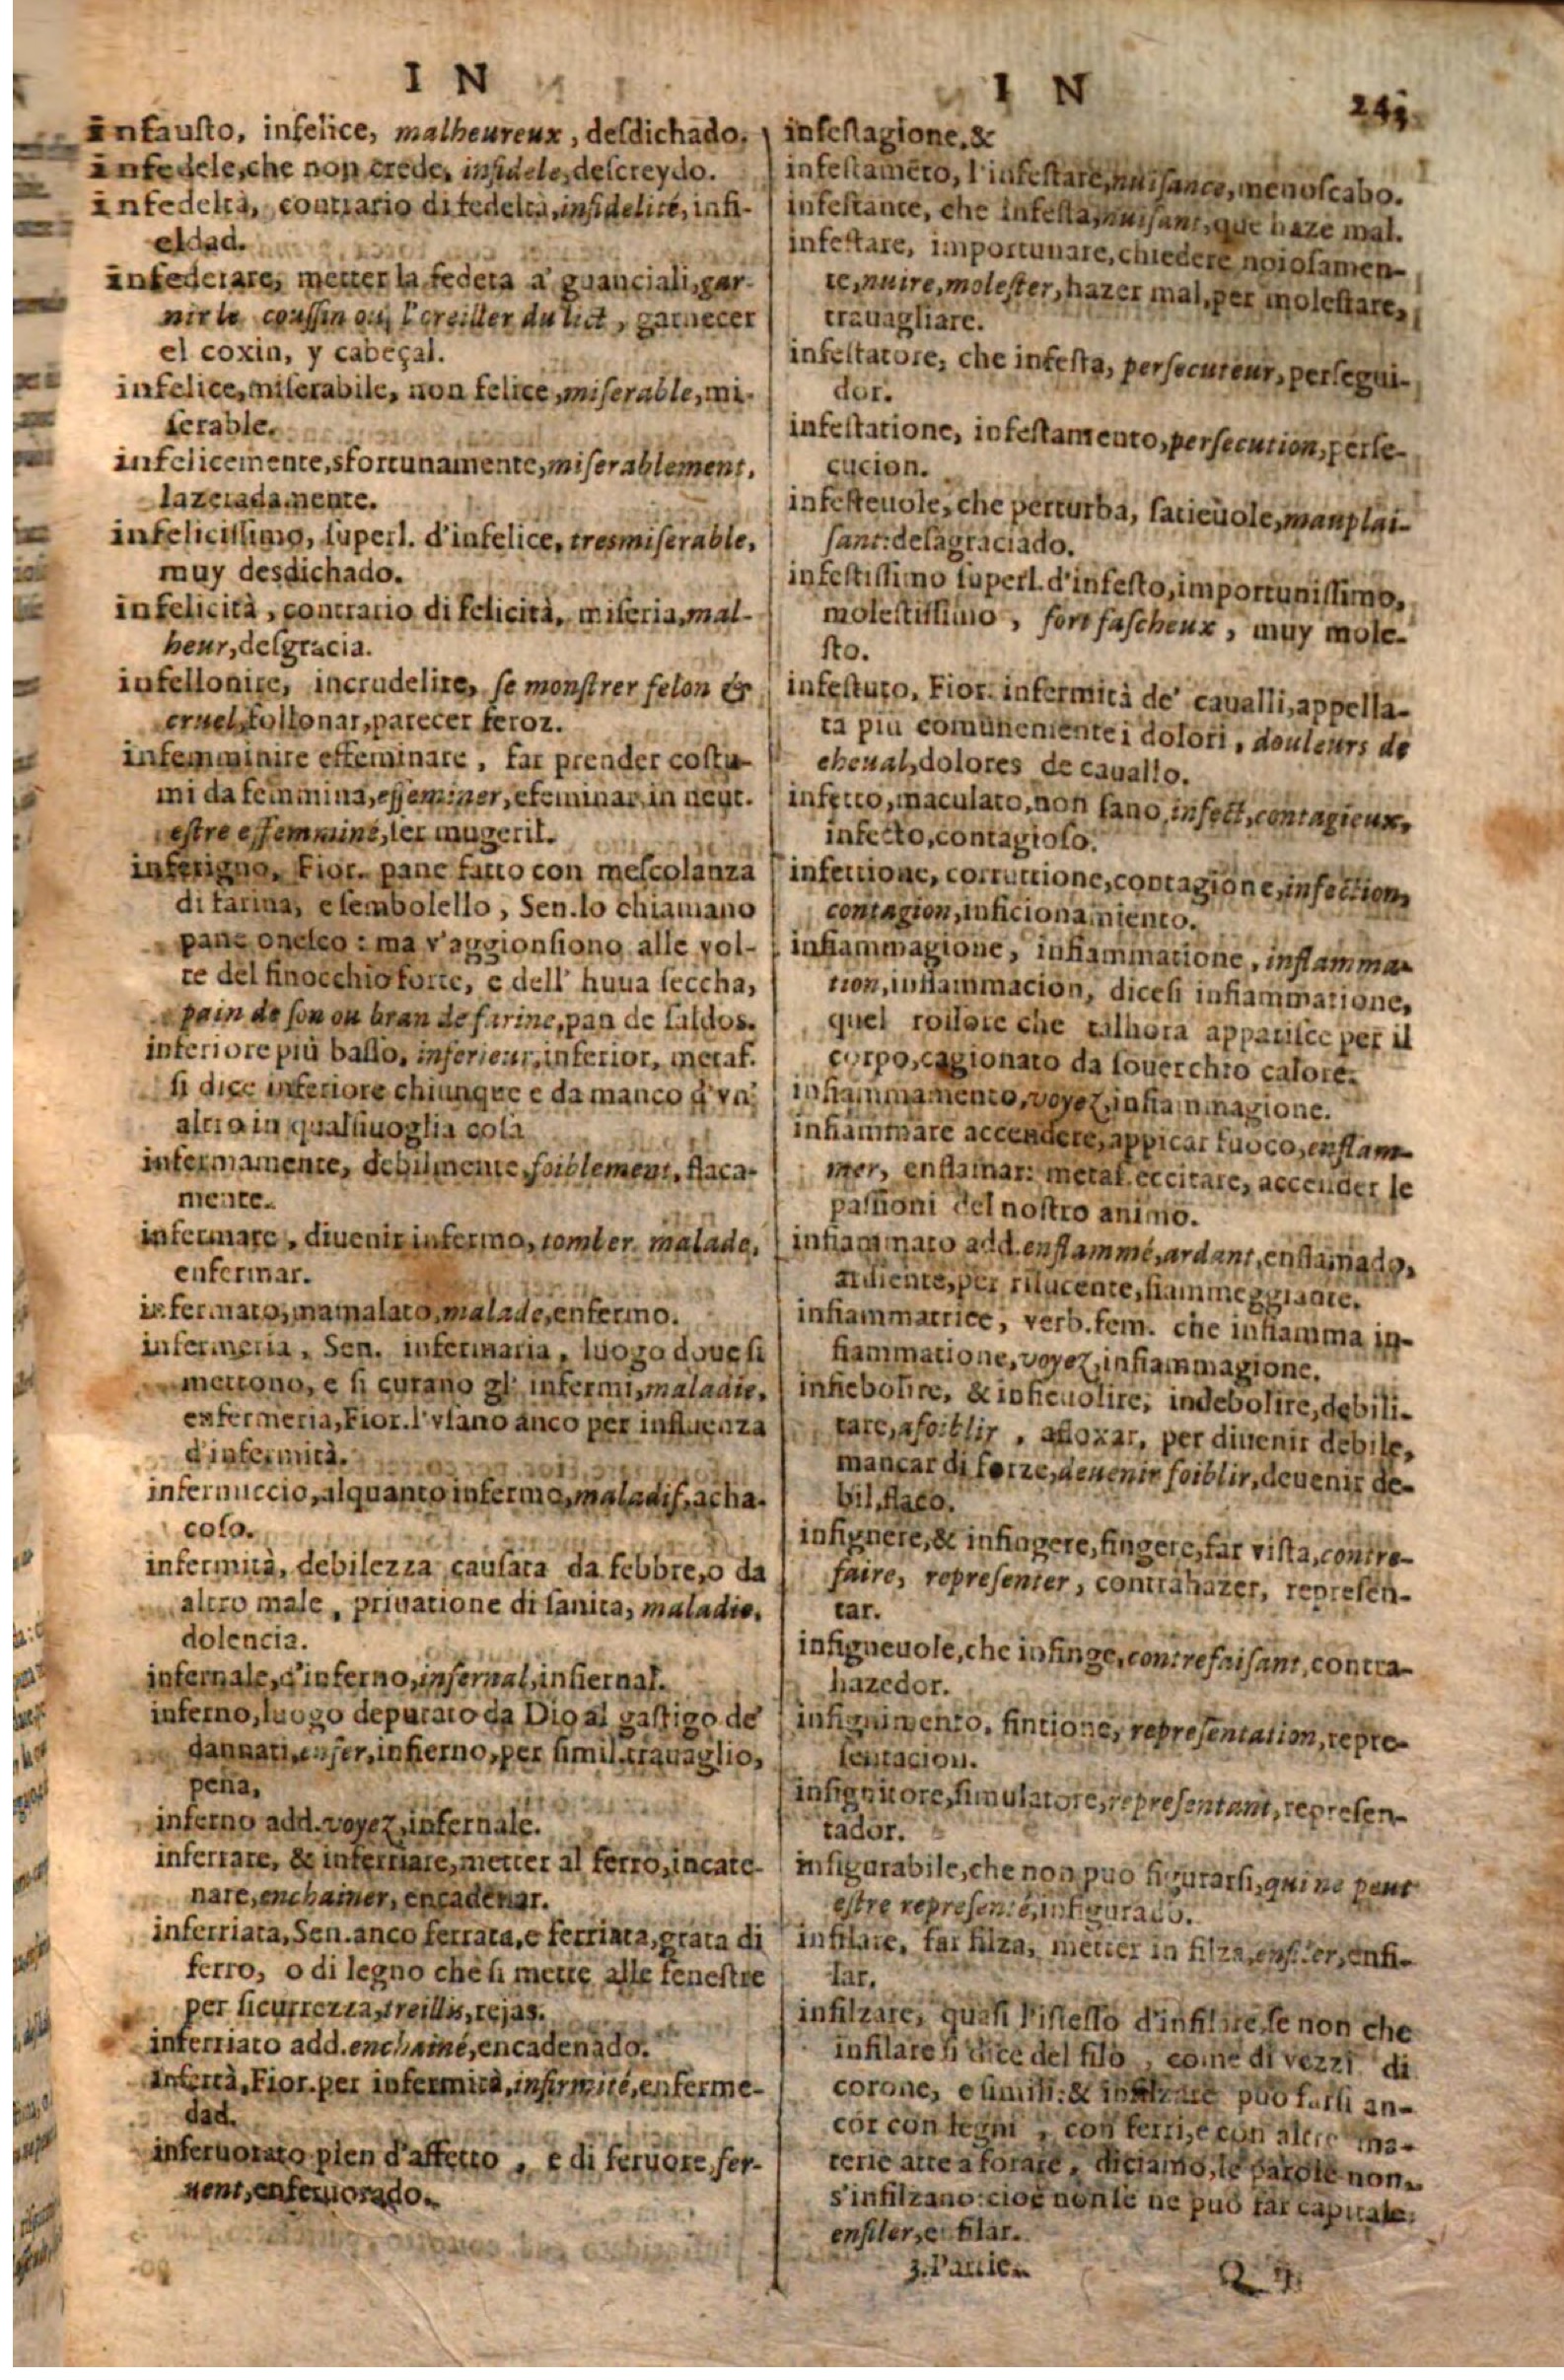 I N
infausto, infelice, malheureux, desdichado.
infedele, che non crede, infidele, descreydo.
infedeltà, contrario di fedeltà, infidelité, infi-
eldad.
infederare, metter la federa a' guanciali, gar-
nir le coussin ou l'oreiller du lict, guarnecer
el coxin, y cabeçal.
infelice, miserabile, non felice, miserable, mi-
serable.
infelicemente, sfortunamente, miserablement,
lazeradamente.
infelicissimo, superl. d'infelice, tresmiserable,
muy desdichado.
infelicità, contrario di felicità, miseria, mal-
heur, desgracia.
infellonire, incrudelire, se monstrer felon &
cruel, follonar, parecer feroz.
infemminire effeminare, far prender costu-
mi da femmina, effeminer, efeminar in neut.
estre effemminé, ser mugeril.
inferigno, Fior. pane fatto con mescolanza
di farina, e sembolello, Sen. lo chiamano
pane : ma v'aggionsiono alle vol-
te del finocchio forte, e dell' huua seccha,
pain de son ou bran de farine, pan de saldos.
inferiore più basso, inferieur, inferior, metaf.
si dice inferiore chiunque e da manco d'vn'
altro in qualsiuoglia cosa
infermamente, debilmente, foiblement, flaca-
mente.
infermare, diuenir infermo, tomber malade,
enfermar.
infermato, mamalato, malade, enfermo.
infermeria, Sen. infermaria, luogo doue si
mettono, e si curano gl' infermi, maladie,
enfermeria, Fior. l'vsano anco per influenza
d'infermità.
infermuccio, alquanto infermo, maladif, acha-
coso.
infermità, debilezza causata da febbre, o da
altro male, priuatione di sanita, maladie,
dolencia.
infernale, d'inferno, infernal, infiernal.
inferno, luogo deputato da Dio al gastigo de'
dannati, enfer, infierno, per simil. trauaglio,
pena,
inferno add. voyez, infernale.
inferrare, & inferriare, metter al ferro, incate-
nare, enchainer, encadenar.
inferriata, Sen. anco ferrata, e ferriata, grata di
ferro, o di legno che si mette alle fenestre
per sicurrezza, treillis, rejas.
inferriato add. enchainé, encadenado.
infertà, Fior. per infermità, infirmité, enferme-
dad.
inferuorato pien d'affetto, e di feruore, fer-
uent, enferuorado.
I N
infestagione, &
infestamēto, l'infestare, nuisance, menoscabo.
infestante, che infesta, nuisant, que haze mal.
infestare, importunare, chiedere noiosamen-
te, nuire, molester, hazer mal, per molestare,
trauagliare.
infestatore, che infesta, persecuteur, persegui-
dor.
infestatione, infestamento, persecution, perse-
cucion.
infesteuole, che perturba, satieuole, mauplai-
sant: desagraciado.
infestissimo superl. d'infesto, importunissimo,
molestissimo, fort fascheux, muy mole-
sto.
infestuto, Fior. infermità de' caualli, appella-
ta piu comunemente i dolori, douleurs de
cheual, dolores de cauallo.
infetto, maculato, non sano, infect, contagieux,
infecto, contagioso.
infettione, corruttione, contagione, infection,
contagion, inficionamiento.
infiammagione, infiammatione, inflamma-
tion, inflammacion, dicesi infiammatione,
quel rossore che talhora apparisce per il
corpo, cagionato da souerchio calore.
infiammamento, voyez, infiammagione.
infiammare accendere, appicar fuoco, enflam-
mer, enflamar: metaf. eccitare, accender le
passioni del nostro animo.
infiammato add. enflammé, ardant, enflamado,
ardiente, per rilucente, fiammeggiante.
infiammatrice, verb. fem. che infiamma in-
fiammatione, voyez, infiammagione.
infiebolire, & infieuolire, indebolire, debili-
tare, afoiblir, afloxar, per diuenir debile,
mancar di forze, deuenir foiblir, deuenir de-
bil, flaco.
infignere, & infingere, fingere, far vista, contre-
faire, representer, contrahazer, represen-
tar.
infigneuole, che infinge, contrefaisant, contra-
hazedor.
infignimento, fintione, representation, repre-
sentacion.
infignitore, simulatore, representant, represen-
tador.
infigurabile, che non puo figurarsi, qui ne peut
estre representé, infigurado.
infilare, far filza, metter in filza, enfiler, enfi-
lar.
infilzare, quasi l'istesso d'infilare, se non che
infilare si dice del filo, come di vezzi di
corone, e simili: & infilzare può farsi an-
cor con legni, con ferri, e con altre ma-
terie atte a forare, diciamo, le parole non
s'infilzano: cioè non se ne può far capitale,
enfiler, enfilar.
3. Partie.